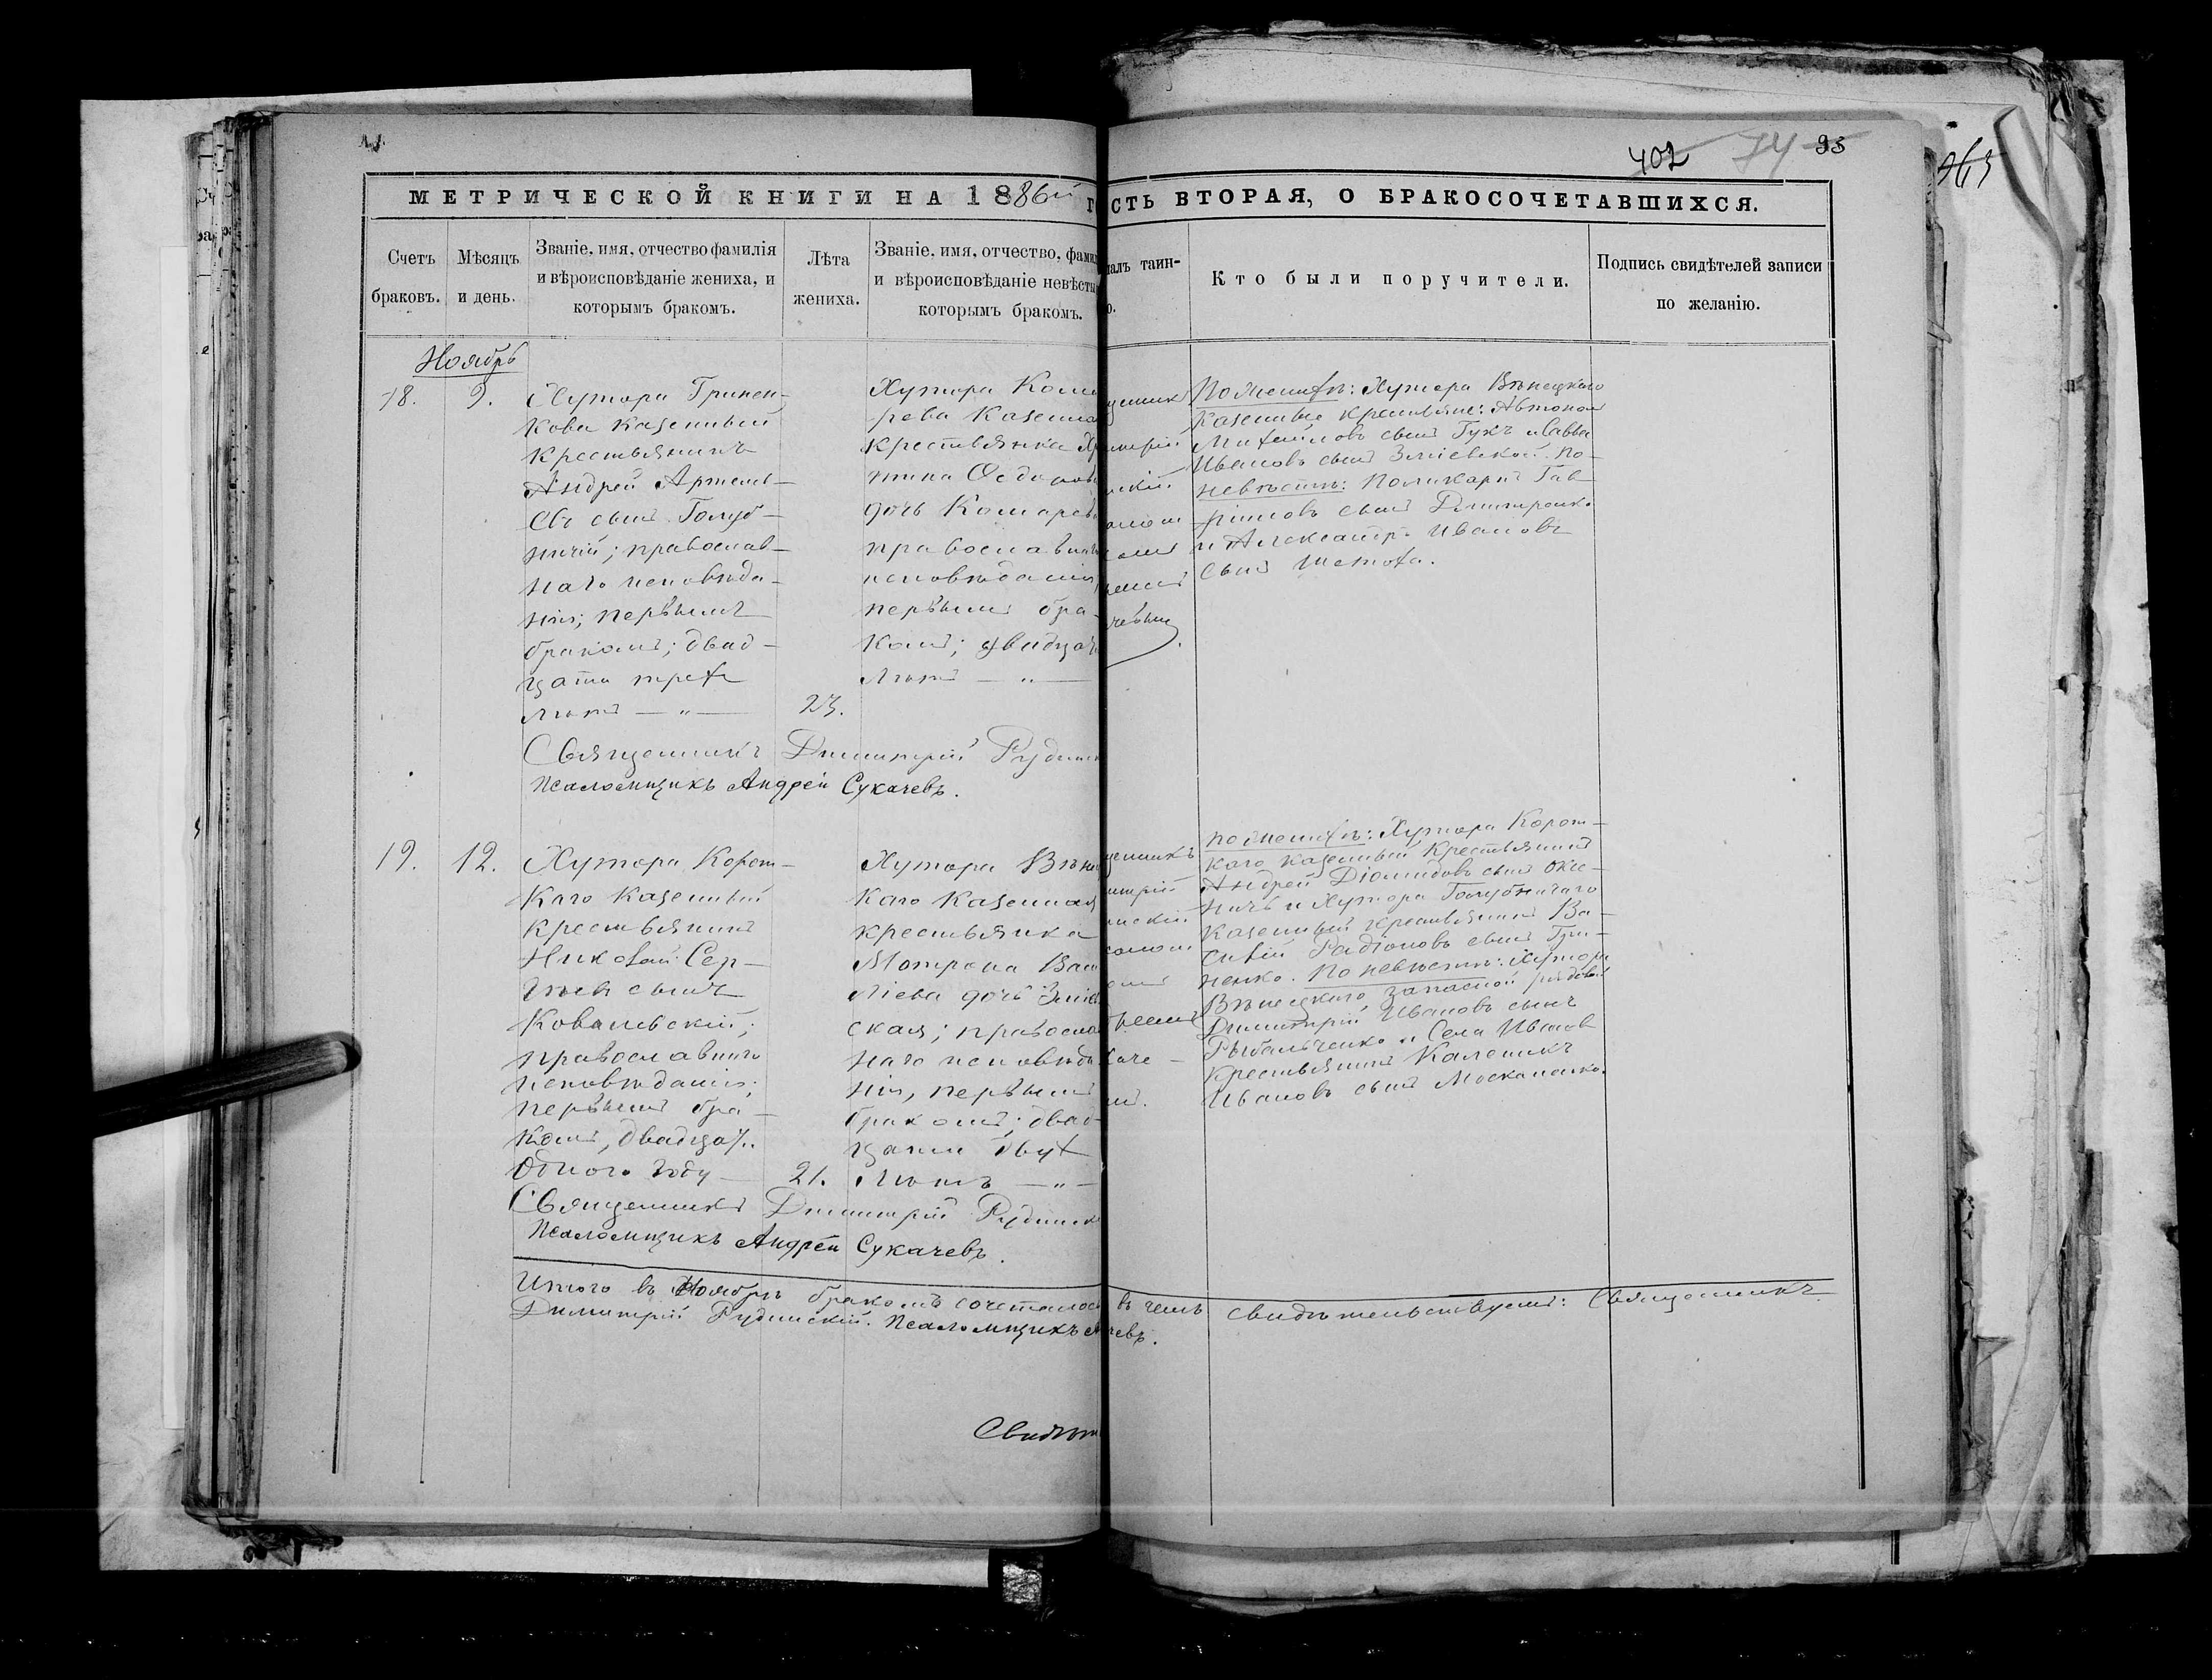 402 74 95
963
МЕТРИЧЕСКОЙ КНИГИ НА 1886й
СТЬ ВТОРАЯ, О БРАКОСОЧЕТАВШИХСЯ.
Счетъ браковъ.
Мѣсяцъ и день.
Званіе, имя, отчество фамилія
и вѣроисповѣданіе жениха, и
которымъ бракомъ.
Лѣта
жениха.
Званіе, имя, отчество, фами
и вѣроисповѣданіе невѣсты
которымъ бракомъ.
таин-
Кто были поручители.
Подпись свидѣтелей записи
по желанію.
Ноябрь
18. 9.
Хутора Гринен-
кова казенный
крестьянинъ
Андрей Артемь-
евъ сынъ Голуб-
ничій; православ-
наго исповѣда-
нія; первымъ
бракомъ; двад-
цати трехъ
лѣтъ — „ —
23.
Хутора Кома
рева казенна
крестьянка Хр
тина Ѳедоров
дочь Комарев
православна
исповѣданія,
первымъ бра-
комъ; двадцат
лѣтъ — „ —
По женихѣ: Хутора Вѣнецкаго
казенные крестьяне: Автономъ
Михайловъ сынъ Гукъ и Савва
Ивановъ сынъ Зміевской. По
невѣстѣ: Поликарпъ Гав-
ріиловъ сынъ Димитренко
и Александръ Ивановъ
сынъ Шемоха.
Священникъ Димитрій Рудинск
Псаломщикъ Андрей Сукачевъ.
19. 12.
Хутора Корот-
каго казенный
крестьянинъ
Николай Сер-
гѣевъ сынъ
Ковалевскій;
православнаго
исповѣданія;
первымъ бра-
комъ, двадцати
одного году —
21.
Хутора Вѣне
каго казенная
крестьянка
Мотрона Васи
ліева дочь Зміев
ская; правосла
наго исповѣда
нія, первымъ
бракомъ; двад-
цати двухъ
лѣтъ — „ —
По женихѣ: Хутора Корот-
каго казенный крестьянинъ
Андрей Діомидовъ сынъ Оже-
Хутора Голубничаго
казенный крестьянинъ Ва-
силій Радіоновъ сынъ Гри-
ненко. По невѣстѣ: Хутора
Вѣнецкаго запасной рядовой
Димитрій Ивановъ сынъ
Рыбальченко и Села
крестьянинъ Каленикъ
Ивановъ сынъ Москаленко.
Священникъ Димитрій Рудинск
Псаломщикъ Андрей Сукачевъ.
Итого въ Ноябрѣ бракомъ сочеталос въ чемъ свидѣтельствуемъ: Священникъ
Димитрій Рудинскій. Псаломщикъ А чевъ.
Свидѣт